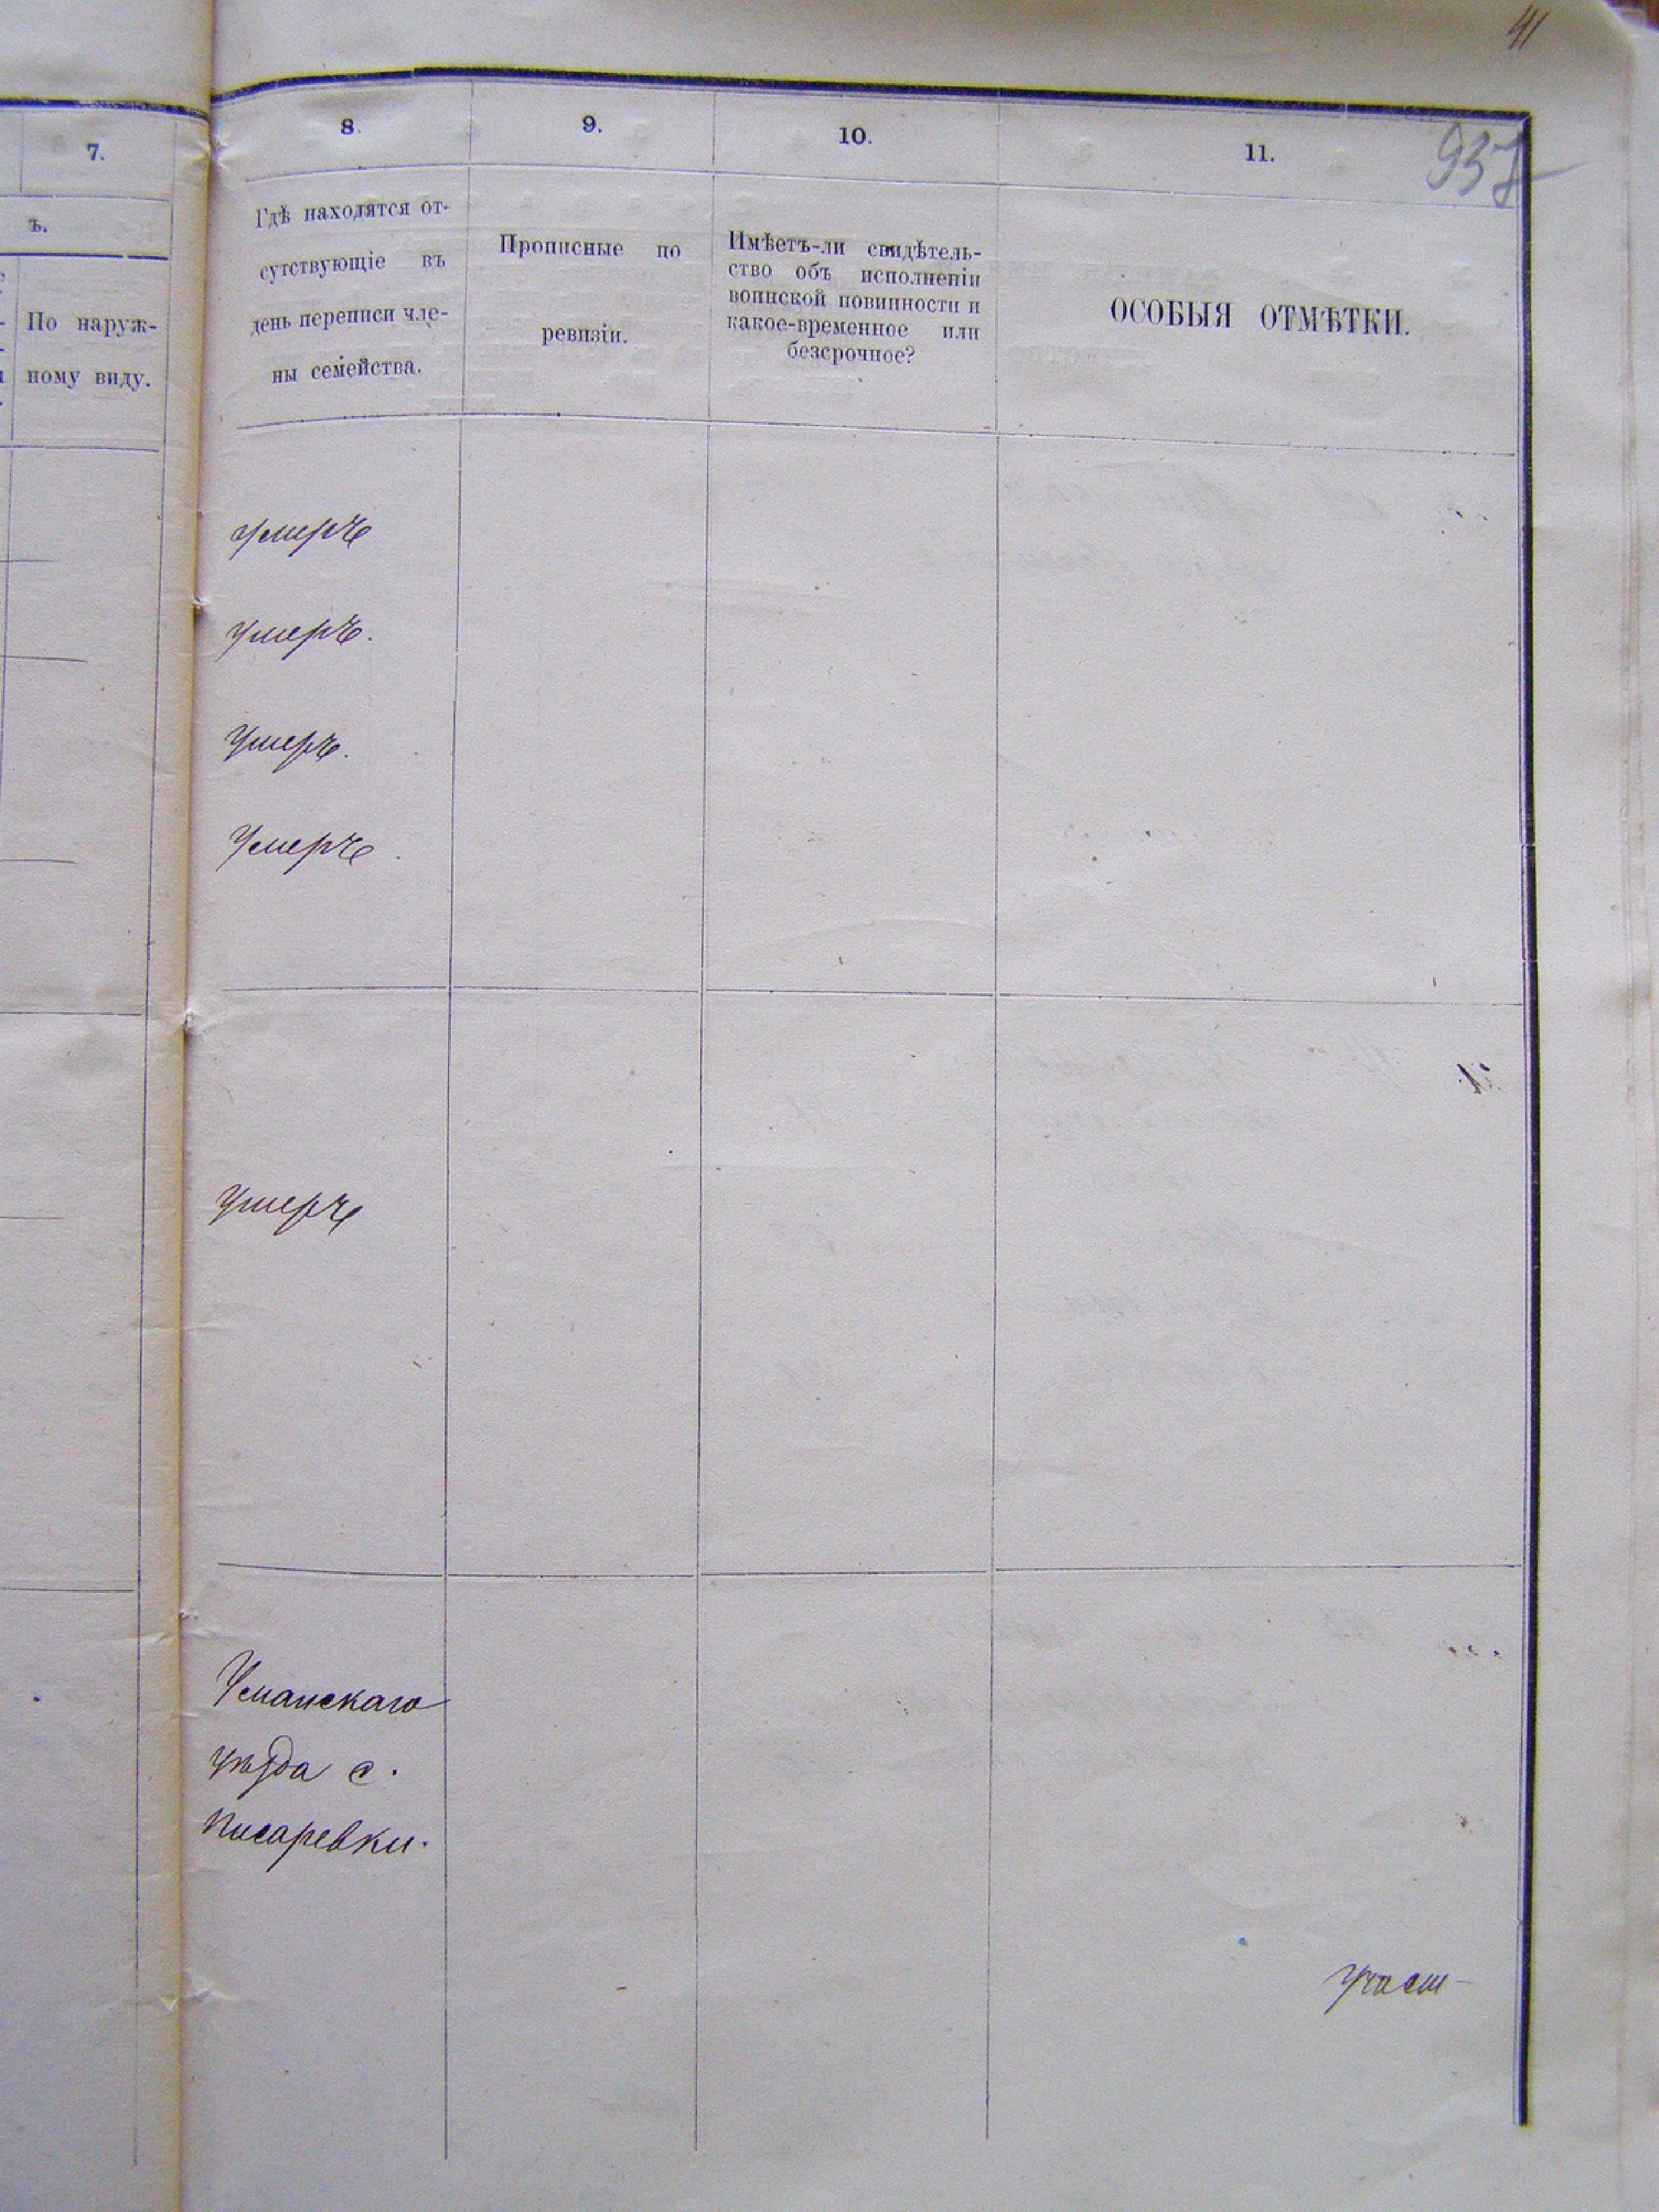 41
937
7.
8.
9.
10.
11.
ъ.
По наруж-
ному виду.
Гдѣ находятся от-
сутствующіе въ
день переписи чле-
ны семейства.
Прописные по
ревизіи.
Имѣетъ-ли свидѣтель-
ство объ исполненіи
воинской повинности и
какое-временное или
безсрочное?
ОСОБЫЯ ОТМѢТКИ.
умеръ
умеръ.
Умеръ.
Умеръ.
Умеръ
Уманскаго
уѣзда с.
Писаревки.